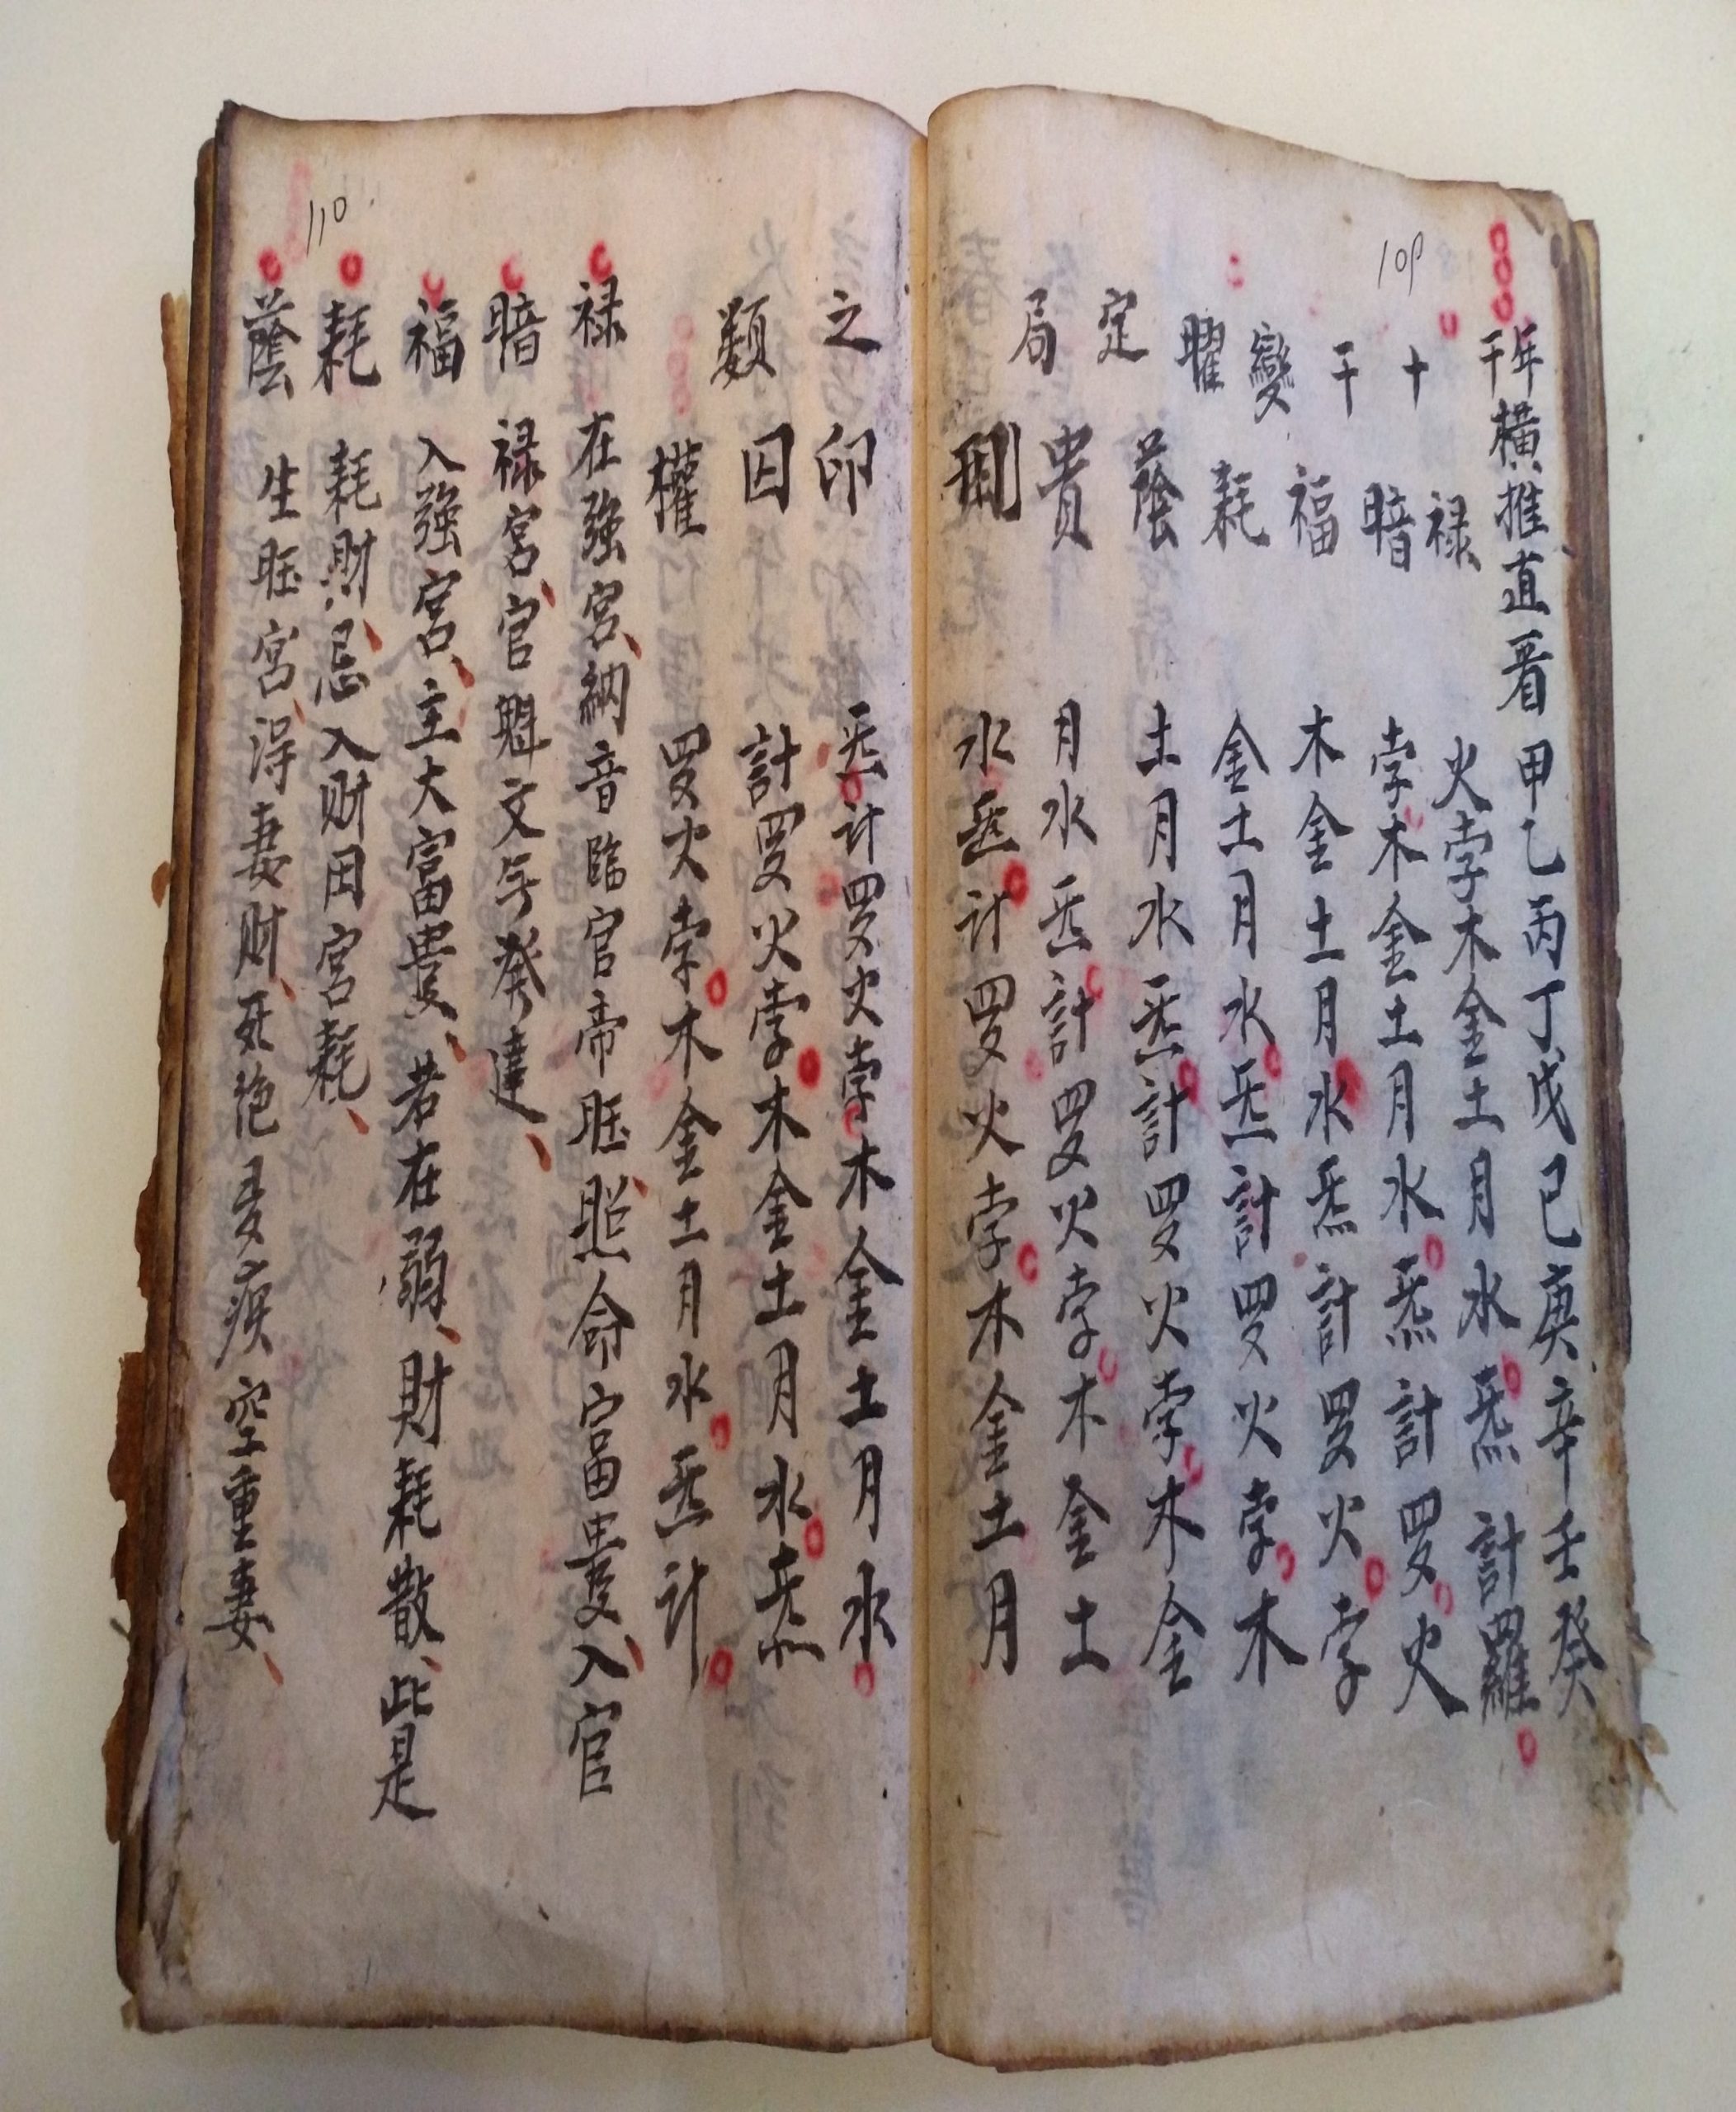 109
年干橫推直看 甲乙丙丁戊己庚辛壬癸
十干變曜定局
禄 火孛木金土月水炁計羅
暗 孛木金土月水炁計罗火
福 木金土月水炁計罗火孛
耗 金土月水炁計罗火孛木
蔭 土月水炁計罗火孛木金
貴 月水炁計罗火孛木金土
刑 水炁计罗火孛木金土月
110
之類
印 炁计罗火孛木金土月水
囚 計罗火孛木金土月水炁
權 罗火孛木金土月水炁计
禄 在強宮、納音臨官帝旺照命富貴、入官
暗 禄宮、官魁文与発達、
福 入強宮、主大富貴、若在弱、財耗散、此是
耗 耗財、忌入财田宮耗、
蔭 生旺宮、淂妻财、死绝多疾空重妻、